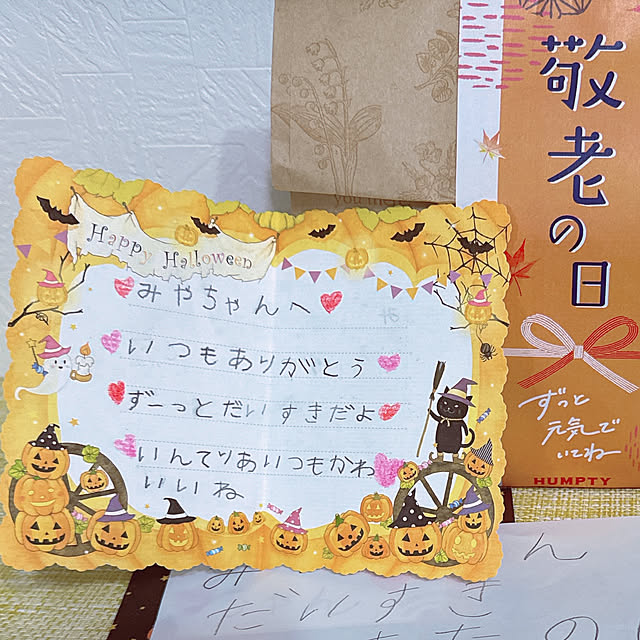 Happy Halloween
みやちゃんへ
いつもありがとう
ずーっとだいすきだよ
いんてりあいつもかわ
いいね
敬老の日
ずっと
元気で
いてねー
HUMPTY
ん
だいすき